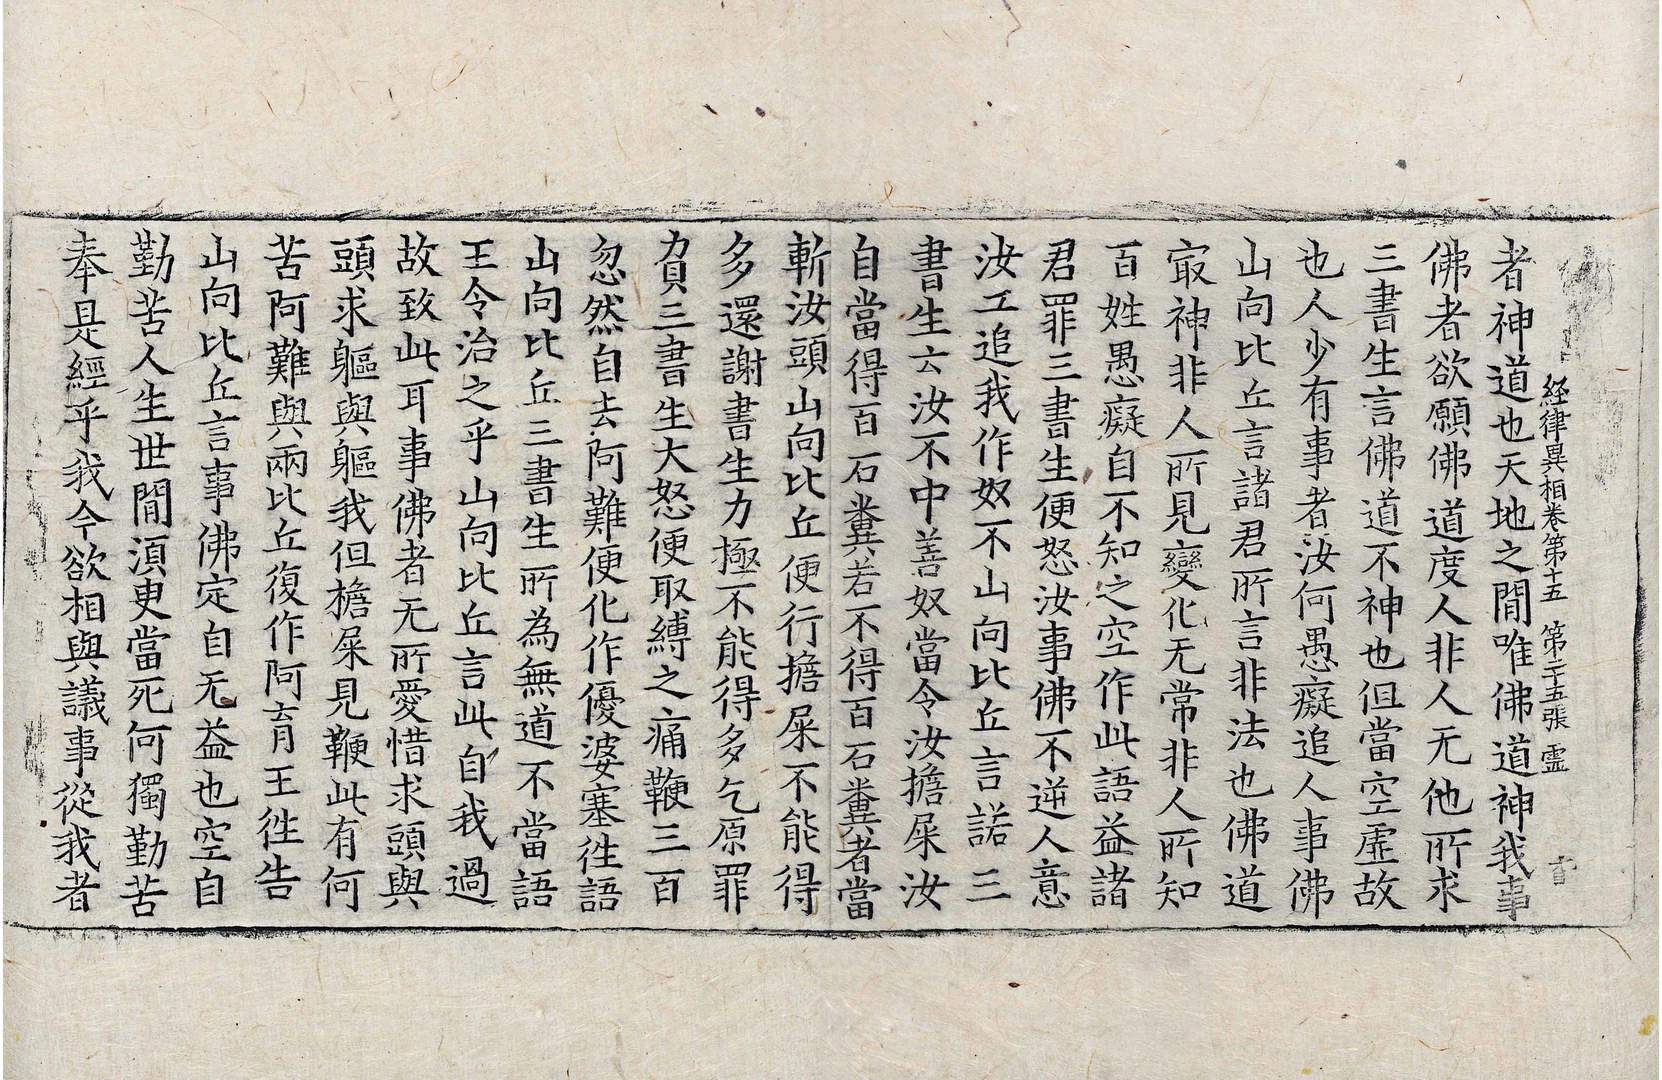 経律異相卷第十五 第二十五張 霊
者神道也天地之閒唯佛道神我事
佛者欲願佛道度人非人无他所求
三書生言佛道不神也但當空虛故
也人少有事者汝何愚癡追人事佛
山向比丘言諸君所言非法也佛道
㝡神非人所見變化无常非人所知
百姓愚癡自不知之空作此語益諸
君罪三書生便怒汝事佛不逆人意
汝工追我作奴不山向比丘言諾三
書生云汝不中善奴當令汝擔屎汝
自當得百石糞若不得百石糞者當
斬汝頭山向比丘便行擔屎不能得
多還謝書生力極不能得多乞原罪
負三書生大怒便取縛之痛鞭三百
忽然自去阿難便化作優婆塞徃語
山向比丘三書生所為無道不當語
王令治之乎山向比丘言此自我過
故致此耳事佛者无所愛惜求頭與
頭求軀與軀我但檐屎見鞭此有何
苦阿難與兩比丘復作阿育王徃告
山向比丘言事佛定自无益也空自
勤苦人生世閒湏臾當死何獨勤苦
奉是經乎我今欲相與議事從我者